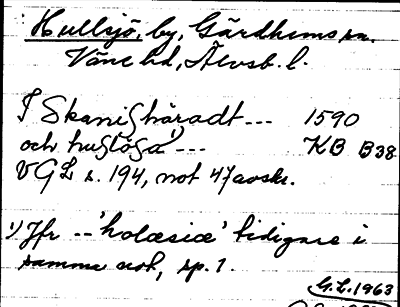 Hullsjö, by, Gärdhems sn.
Väne hd, Älvsb. l.
I Skanighäradt --- 1590
och huglösa¹⁾ --- KB B38
VGL s. 194, not 47 avskr.
¹⁾ Jfr -- 'holæsiæ' tidigare i
samma not, sp. 1.
G.L. 1963